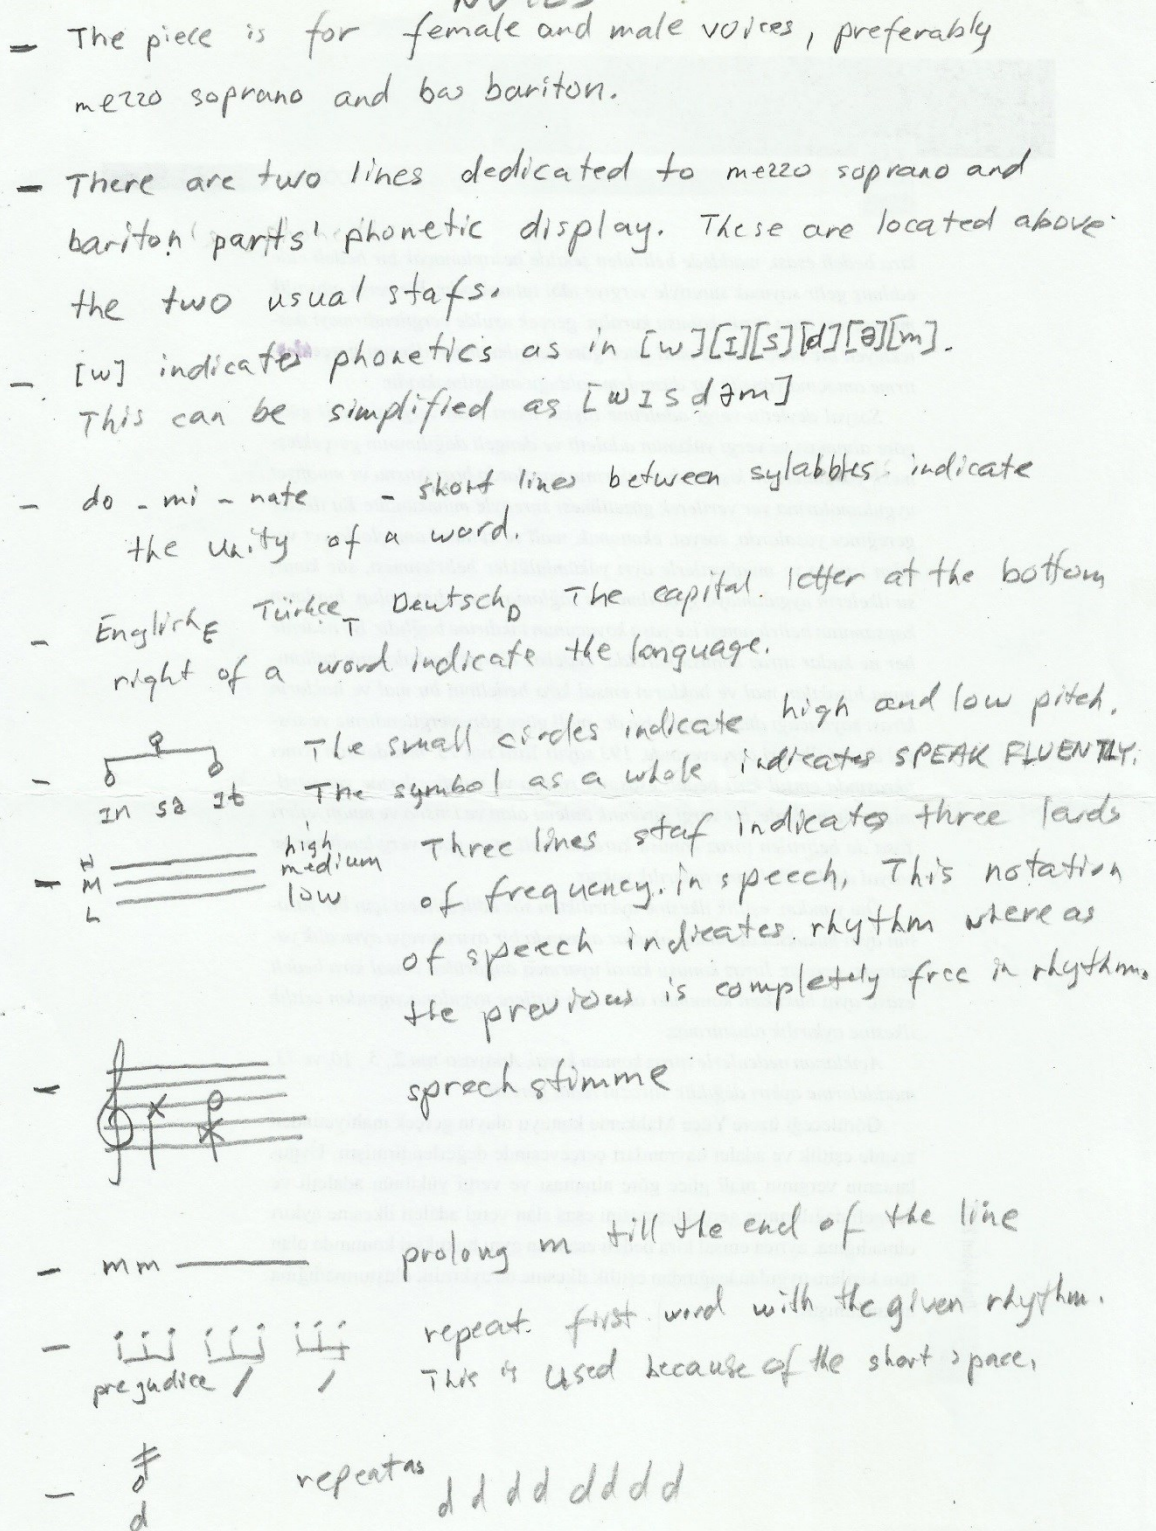 NOTES
- The piece is for female and male voices, preferably
mezzo soprano and bas bariton.
- There are two lines dedicated to mezzo soprano and
bariton' parts' phonetic display. These are located above
the two usual stafs.
- [w] indicates phonetics as in [w][I][s][d][ə][m].
This can be simplified as [wIsdəm]
- do - mi - nate - short lines between sylabbles indicate
the unity of a word.
- English E Türkçe T Deutsch D The capital letter at the bottom
right of a word indicate the language.
- The small circles indicate high and low pitch.
In sə It The symbol as a whole indicates SPEAK FLUENTLY.
- H M L high medium low Three lines staf indicates three levels
of frequency in speech, This notation
of speech indicates rhythm where as
the previous is completely free in rhythm.
- sprech stimme
- mm ——— prolong m till the end of the line
- prejudice / / repeat first word with the given rhythm.
This is used because of the short space,
- d repeat as d d d d d d d d